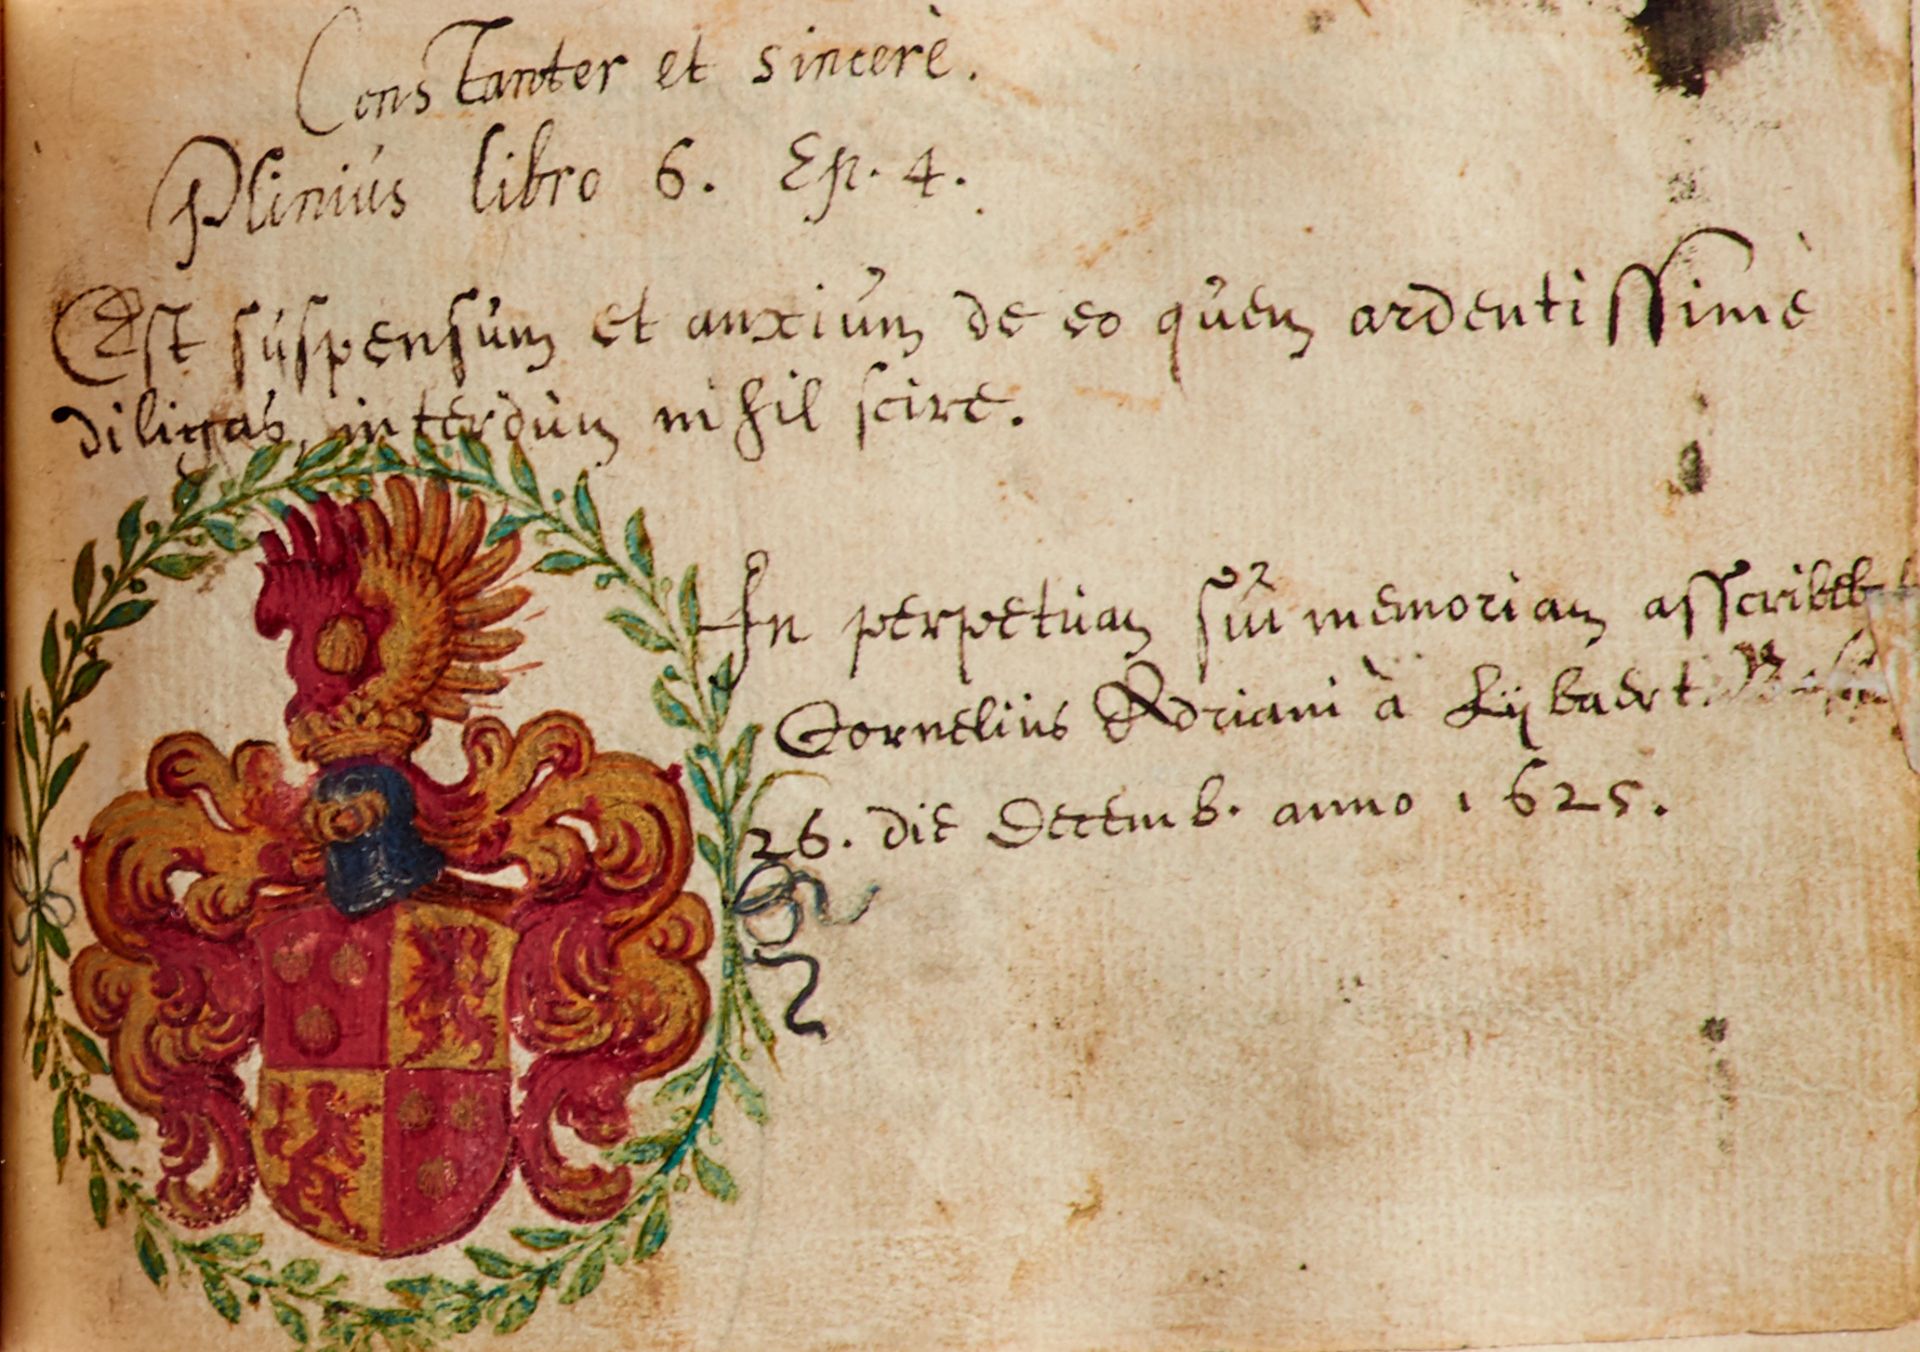 Constanter et sincerè.
Plinius libro 6. Ep. 4.
Est suspensum et anxium de eo quem ardentissimè
diligas, interdum nihil scire.
In perpetuam sui memoriam asscribeb
Cornelius Adriani à Lijbaert.
26. die Decemb. anno 1625.